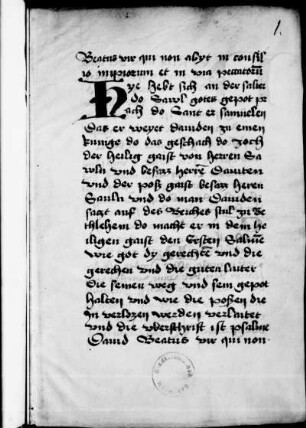 1.
Beatus vir qui non abyt in consil
io impiorum et in via peccatorum
Hye hebt sich an der salter
do Sawl gotes gepot pr
ach do Sant er samuelen
Das er weyet dauiden zu einen
kunige do das geschach do zoch
der heilig gaist von herren Sa
wln und besaz herren Dauiten
und der poß gaist besaz heren
Sauln und do man Dauiden
sazt auf des Reiches stul zu Be
thlehem do macht er in dem he
iligen gaist den Ersten Salme
wie got dy gerechte und die
gerechen und die guten lauter
die seinen weg und sein gepot
halten und wie die poßen die
In verlozen werden verlaitet
und die vberschrift ist psalme
Dauid Beatus vir qui non